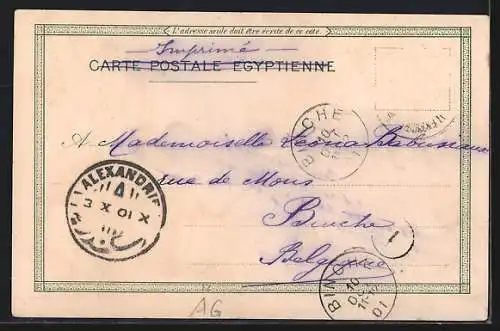 L'adresse seule doit être écrite de ce côté.
Imprimé
CARTE POSTALE EGYPTIENNE
A Mademoiselle
rue de Mons
Binche
Belgique
ALEXANDRIE
3 X 01 X
BINCHE
10
BINCHE
10
11-
01
1
AG